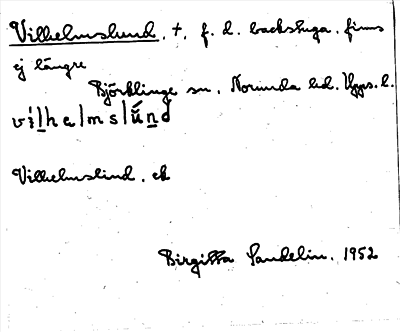 Vilhelmslund, †, f. d. backstuga. finns
ej längre
Björklinge sn, Norunda hd. Upps. l.
Vilhelmslund. ek
Birgitta Sandelin. 1952